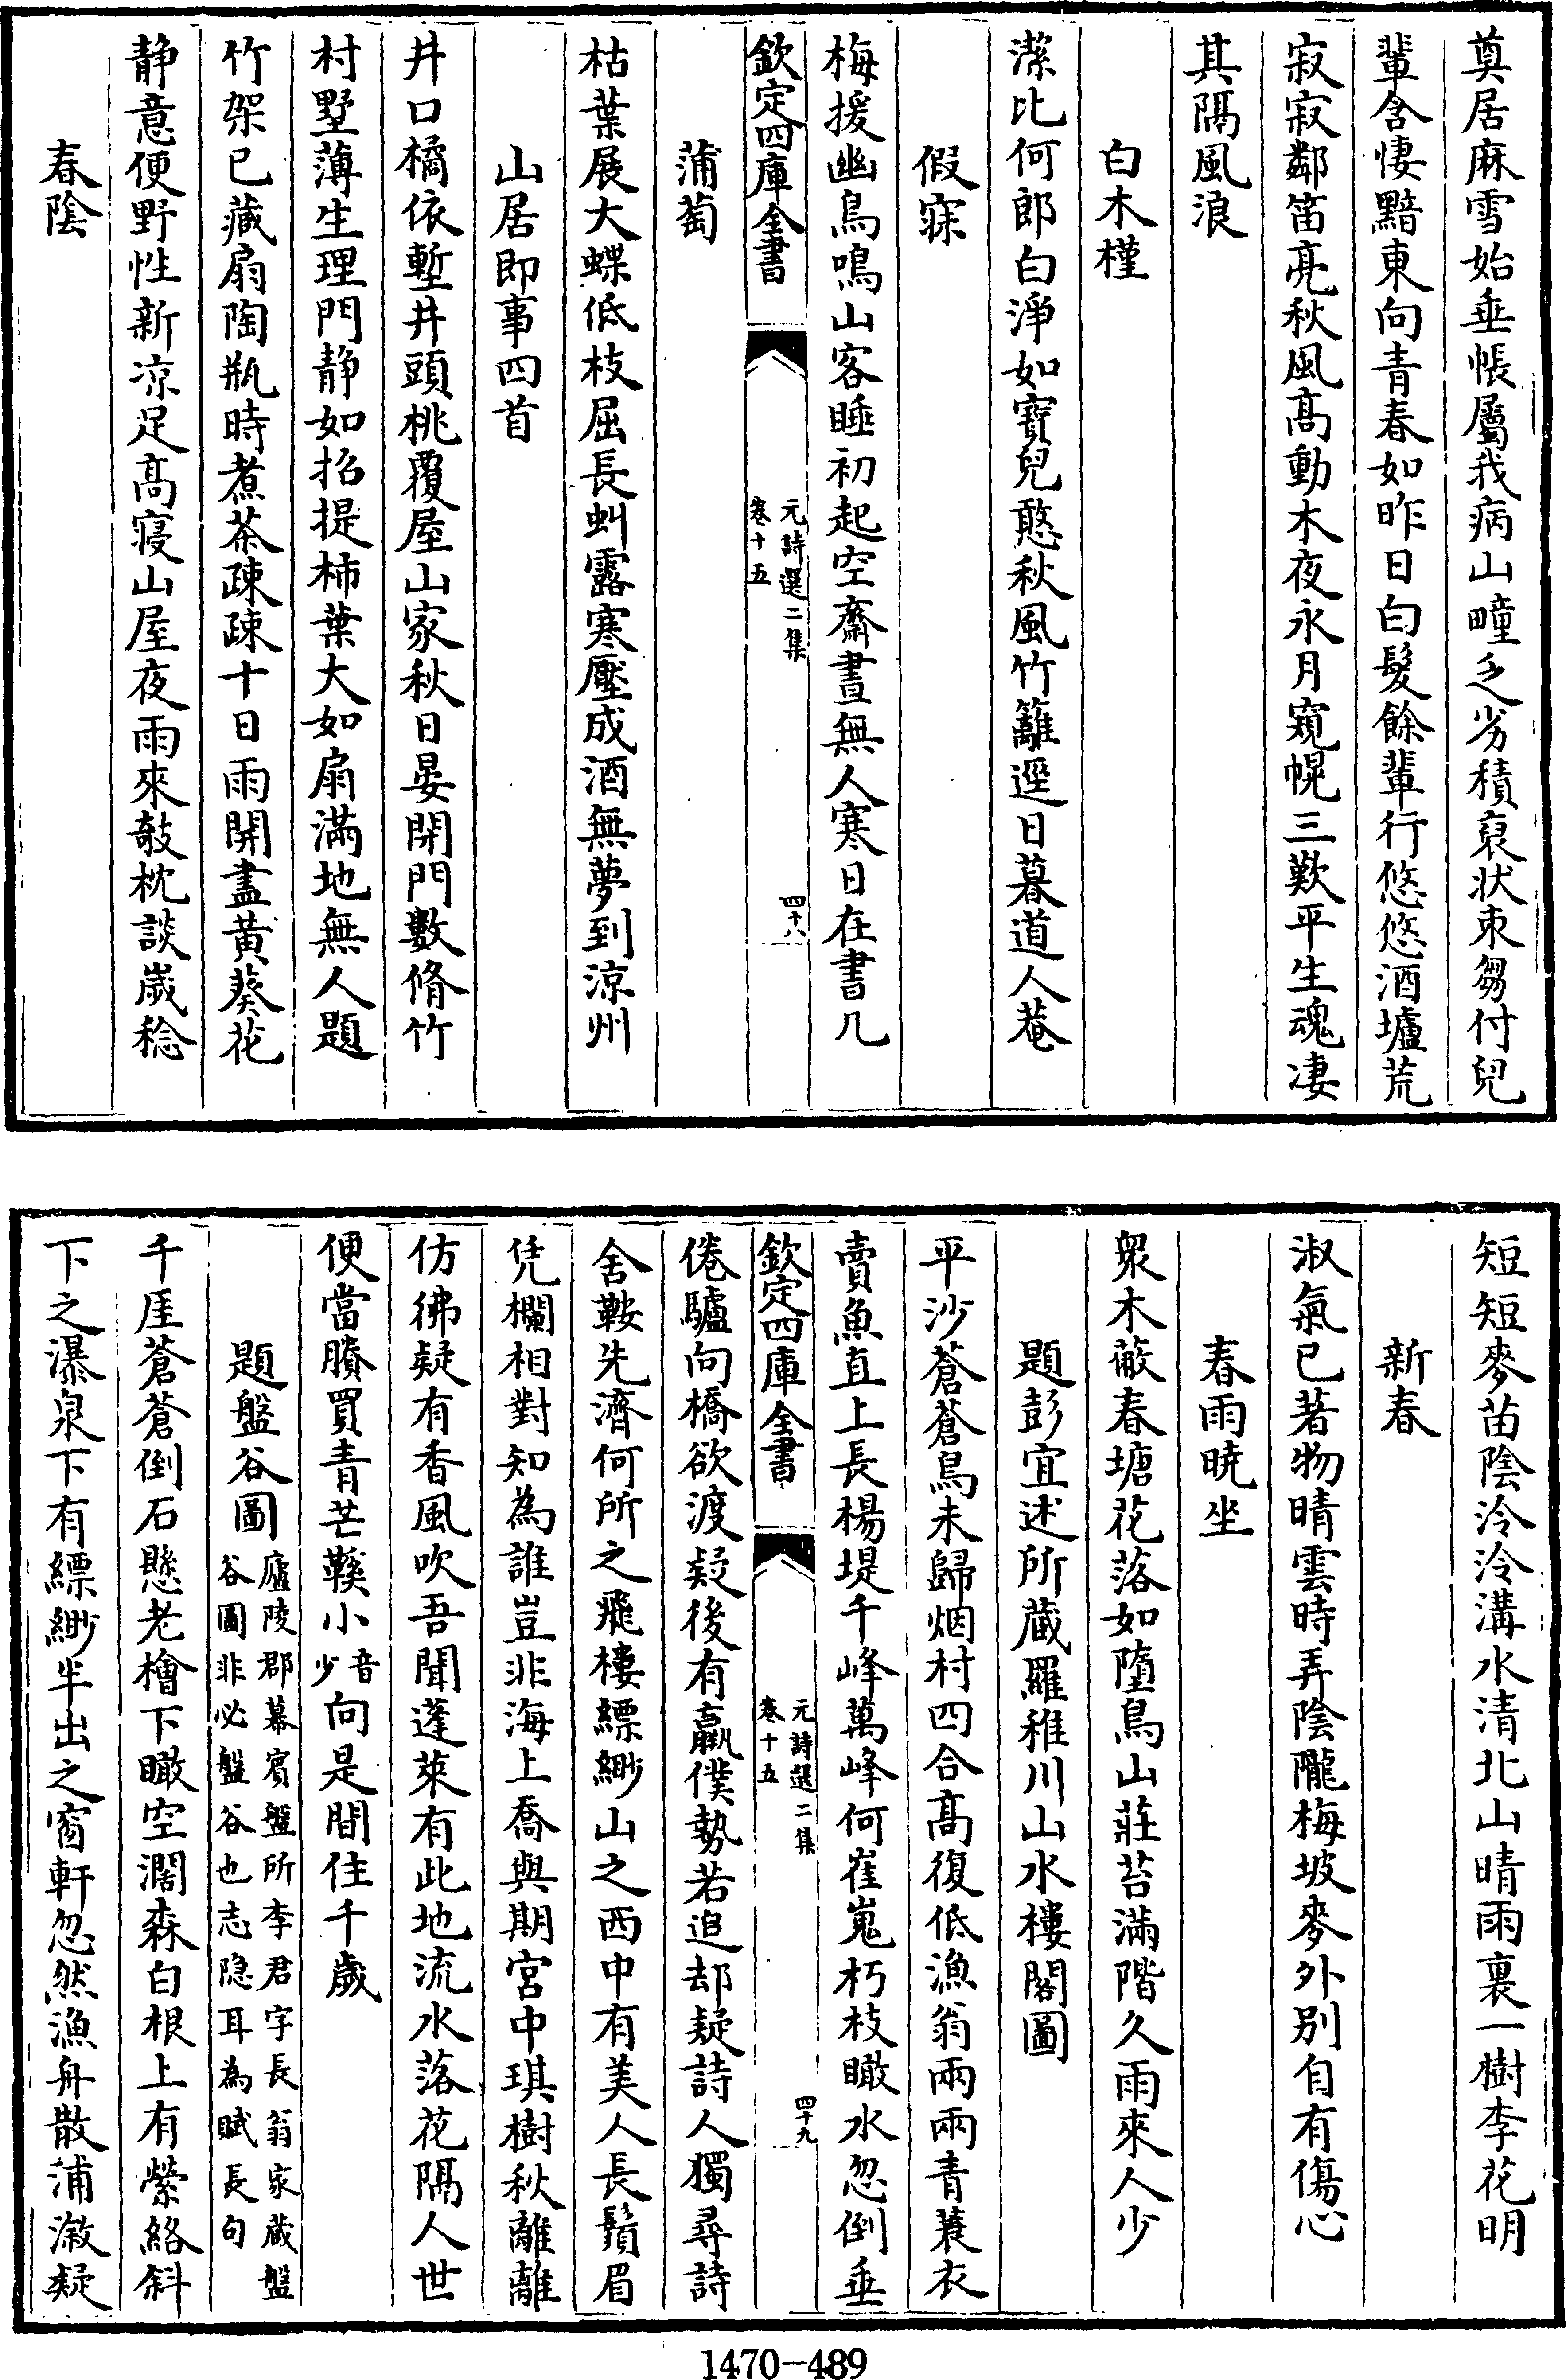 奠居麻雪始垂帳屬我病山疃乏劣積衰状束芻付兒
輩含悽黯東向青春如昨日白髮餘輩行悠悠酒壚荒
寂寂鄰笛亮秋風高動木夜永月窺幌三歎平生魂凄
其隔風浪
白木槿
潔比何郎白淨如寶兒憨秋風竹籬逕日暮道人菴
假寐
梅援幽鳥鳴山客睡初起空齋晝無人寒日在書几
欽定四庫全書
元詩選二集
卷十五
四十八
蒲萄
枯葉展大蝶低枝屈長虯露寒壓成酒無夢到涼州
山居即事四首
井口橘依塹井頭桃覆屋山家秋日晏閉門數脩竹
村墅薄生理門静如招提柿葉大如扇滿地無人題
竹架已藏扇陶瓶時煮茶疎疎十日雨開盡黄葵花
静意便野性新凉足高寝山屋夜雨來敧枕談歲稔
春陰
短短麥苗陰泠泠溝水清北山晴雨裏一樹李花明
新春
淑氣已著物晴雲時弄陰隴梅坡麥外别自有傷心
春雨暁坐
衆木蔽春塘花落如墮鳥山莊苔滿階久雨來人少
題彭宜述所蔵羅稚川山水樓閣圖
平沙蒼蒼鳥未歸烟村四合髙復低漁翁兩兩青蓑衣
賣魚直上長楊堤千峰萬峰何崔嵬朽枝瞰水忽倒垂
欽定四庫全書
元詩選二集
卷十五
四十九
倦驢向橋欲渡疑後有羸僕勢若追却疑詩人獨尋詩
舍鞍先濟何所之飛樓縹緲山之西中有美人長鬚眉
凭欄相對知為誰豈非海上喬與期宮中琪樹秋離離
仿彿疑有香風吹吾聞蓬萊有此地流水落花隔人世
便當賸買青芒鞵小音少向是間住千歲
題盤谷圖廬陵郡幕賓盤所李君字長翁家蔵盤谷圖非必盤谷也志隐耳為賦長句
千厓蒼蒼倒石懸老檜下瞰空濶森白根上有縈絡斜
下之瀑泉下有縹緲半出之窗軒忽然漁舟散浦溆疑
1470-489